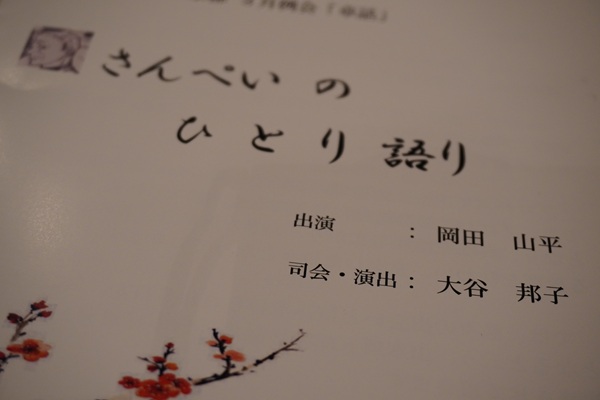 さんぺいの
ひとり語り
出演　：岡田　山平
司会・演出：大谷　邦子